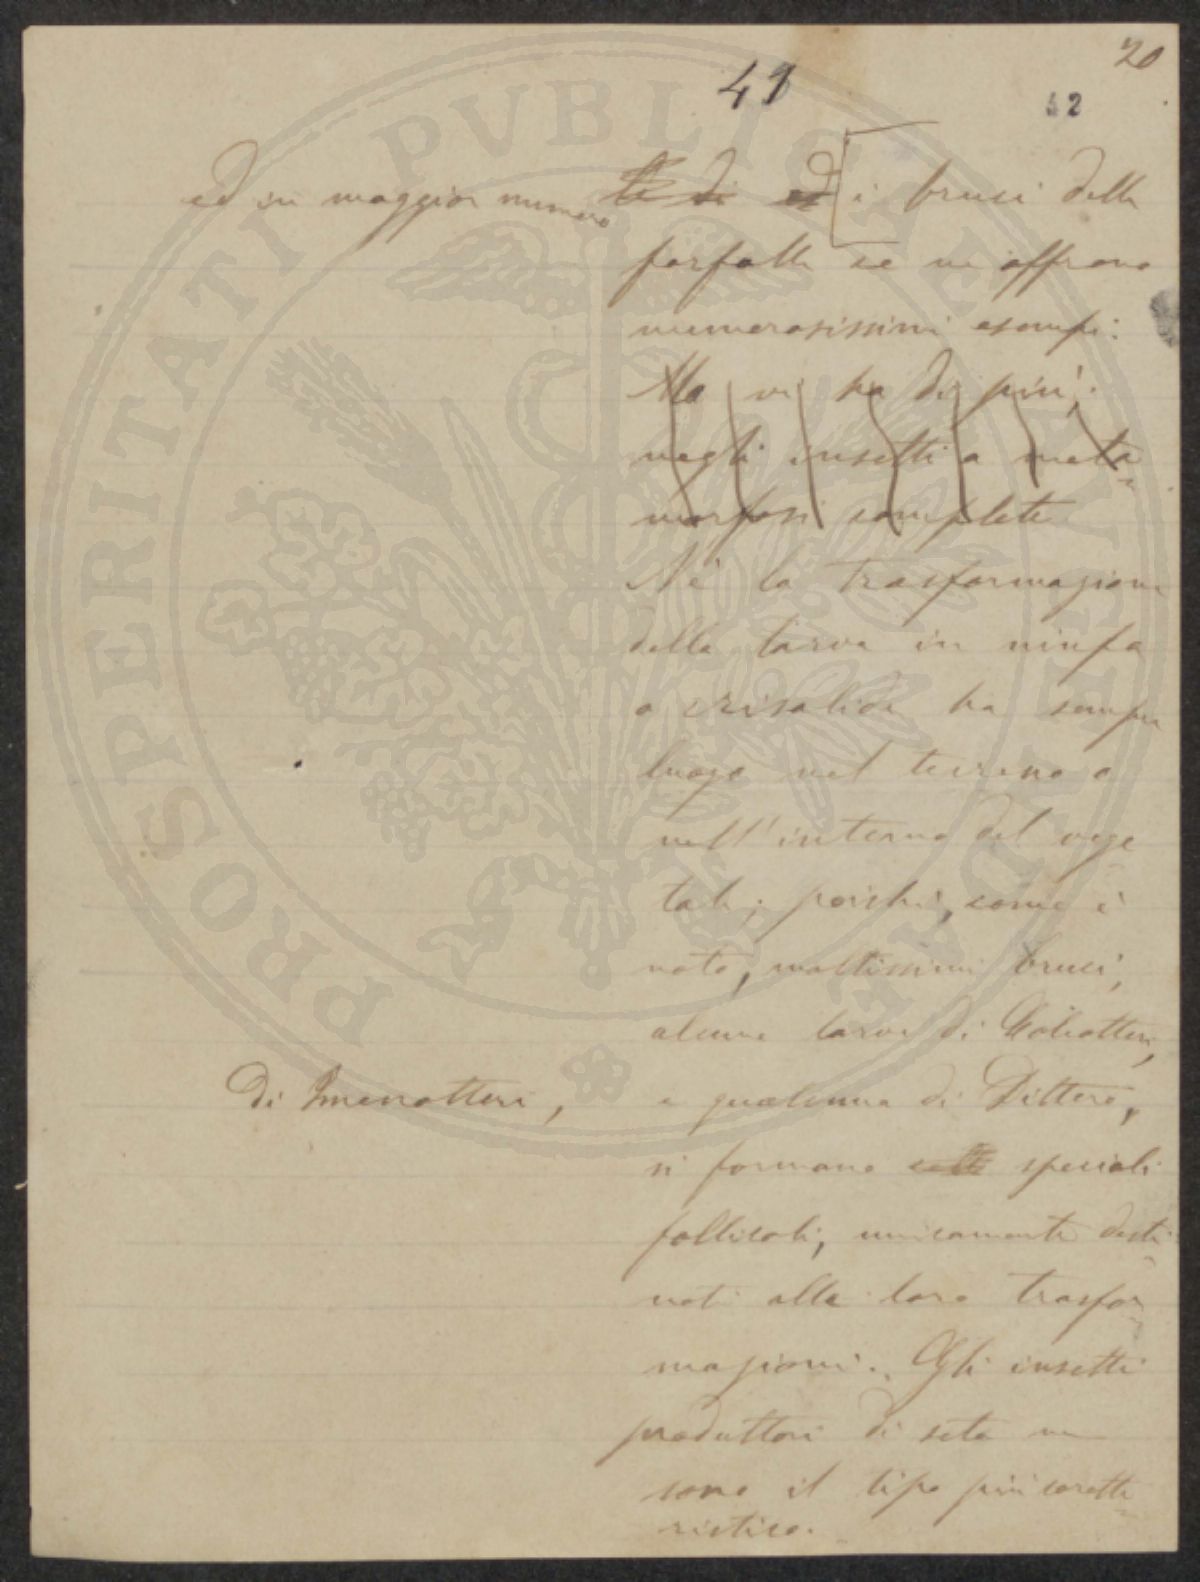 20
41
42
ed in maggior numero
~~te di ed~~ i bruci delle
farfalle ce ne offrono
numerosissimi esempi.
~~Ma vi ha di più;~~
~~negli insetti a meta~~
~~morfosi complete~~
Nè la trasformazione
della larva in ninfa
o crisalide ha sempre
luogo nel terreno o
nell'interno del vege
tale; poichè, come è
noto, moltissimi bruci,
alcune larve di Coleotteri,
di Imenotteri,
e qualcuna di Ditteri,
si formano speciali
follicoli, unicamente desti
nati alle loro trasfor
mazioni. Gli insetti
produttori di seta ne
sono il tipo più caratte
ristico.
PROSPERITATI PVBLICAE AVGENDAE